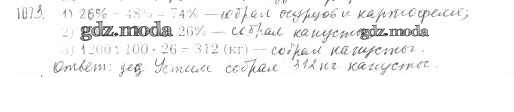 1073. 1) 26% + 48% = 74% — собрал огурцов и картофеля;
2) gdz.moda 26% — собрал капусты gdz.moda
3) 1200 : 100 · 26 = 312 (кг) — собрал капусты.
Ответ: дед Устим собрал 312 кг капусты.